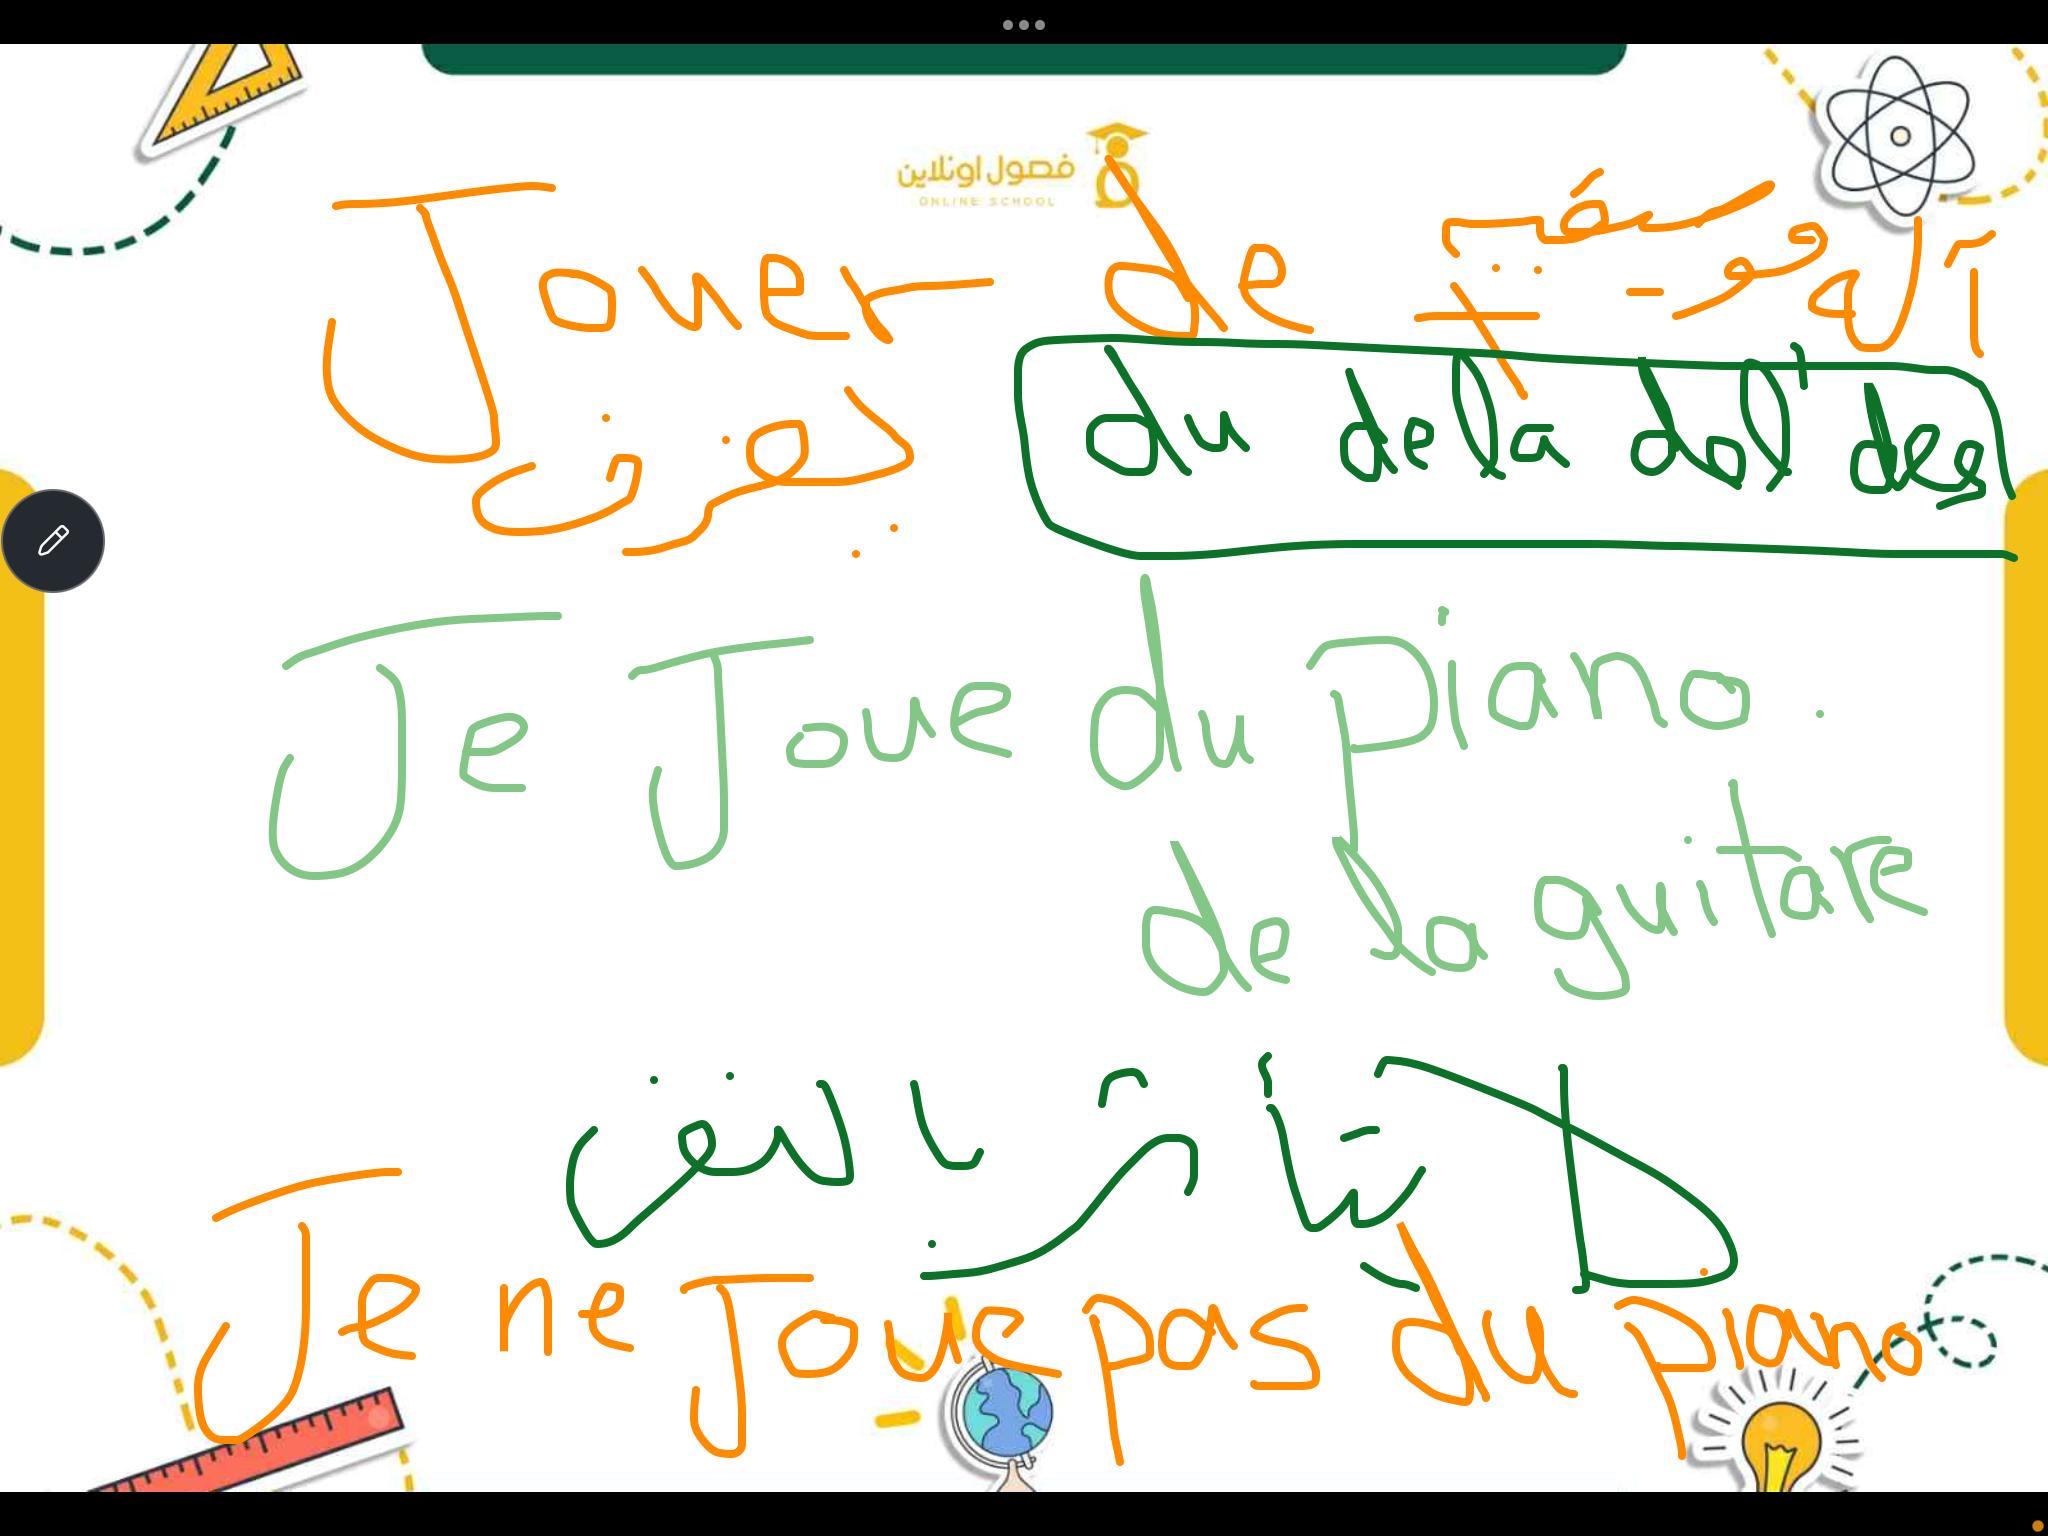 فصول اونلاين
ONLINE SCHOOL
Jouer de + آلة موسيقية
يعزف
du de la de l' des
Je Joue du piano.
de la guitare
لا يتأثر بالنفي
Je ne Joue pas du piano